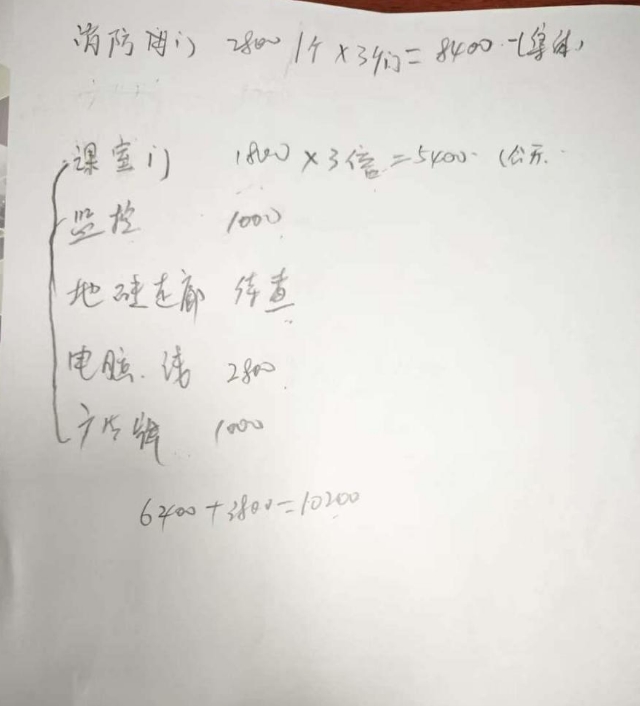 消防闭门 2800 1个×3个门=8400
课室门 1800×3倍=5400 (公开
监控 1000
地砖走廊 待查
电脑、线 2800
广告牌 1000
6400+3800=10200